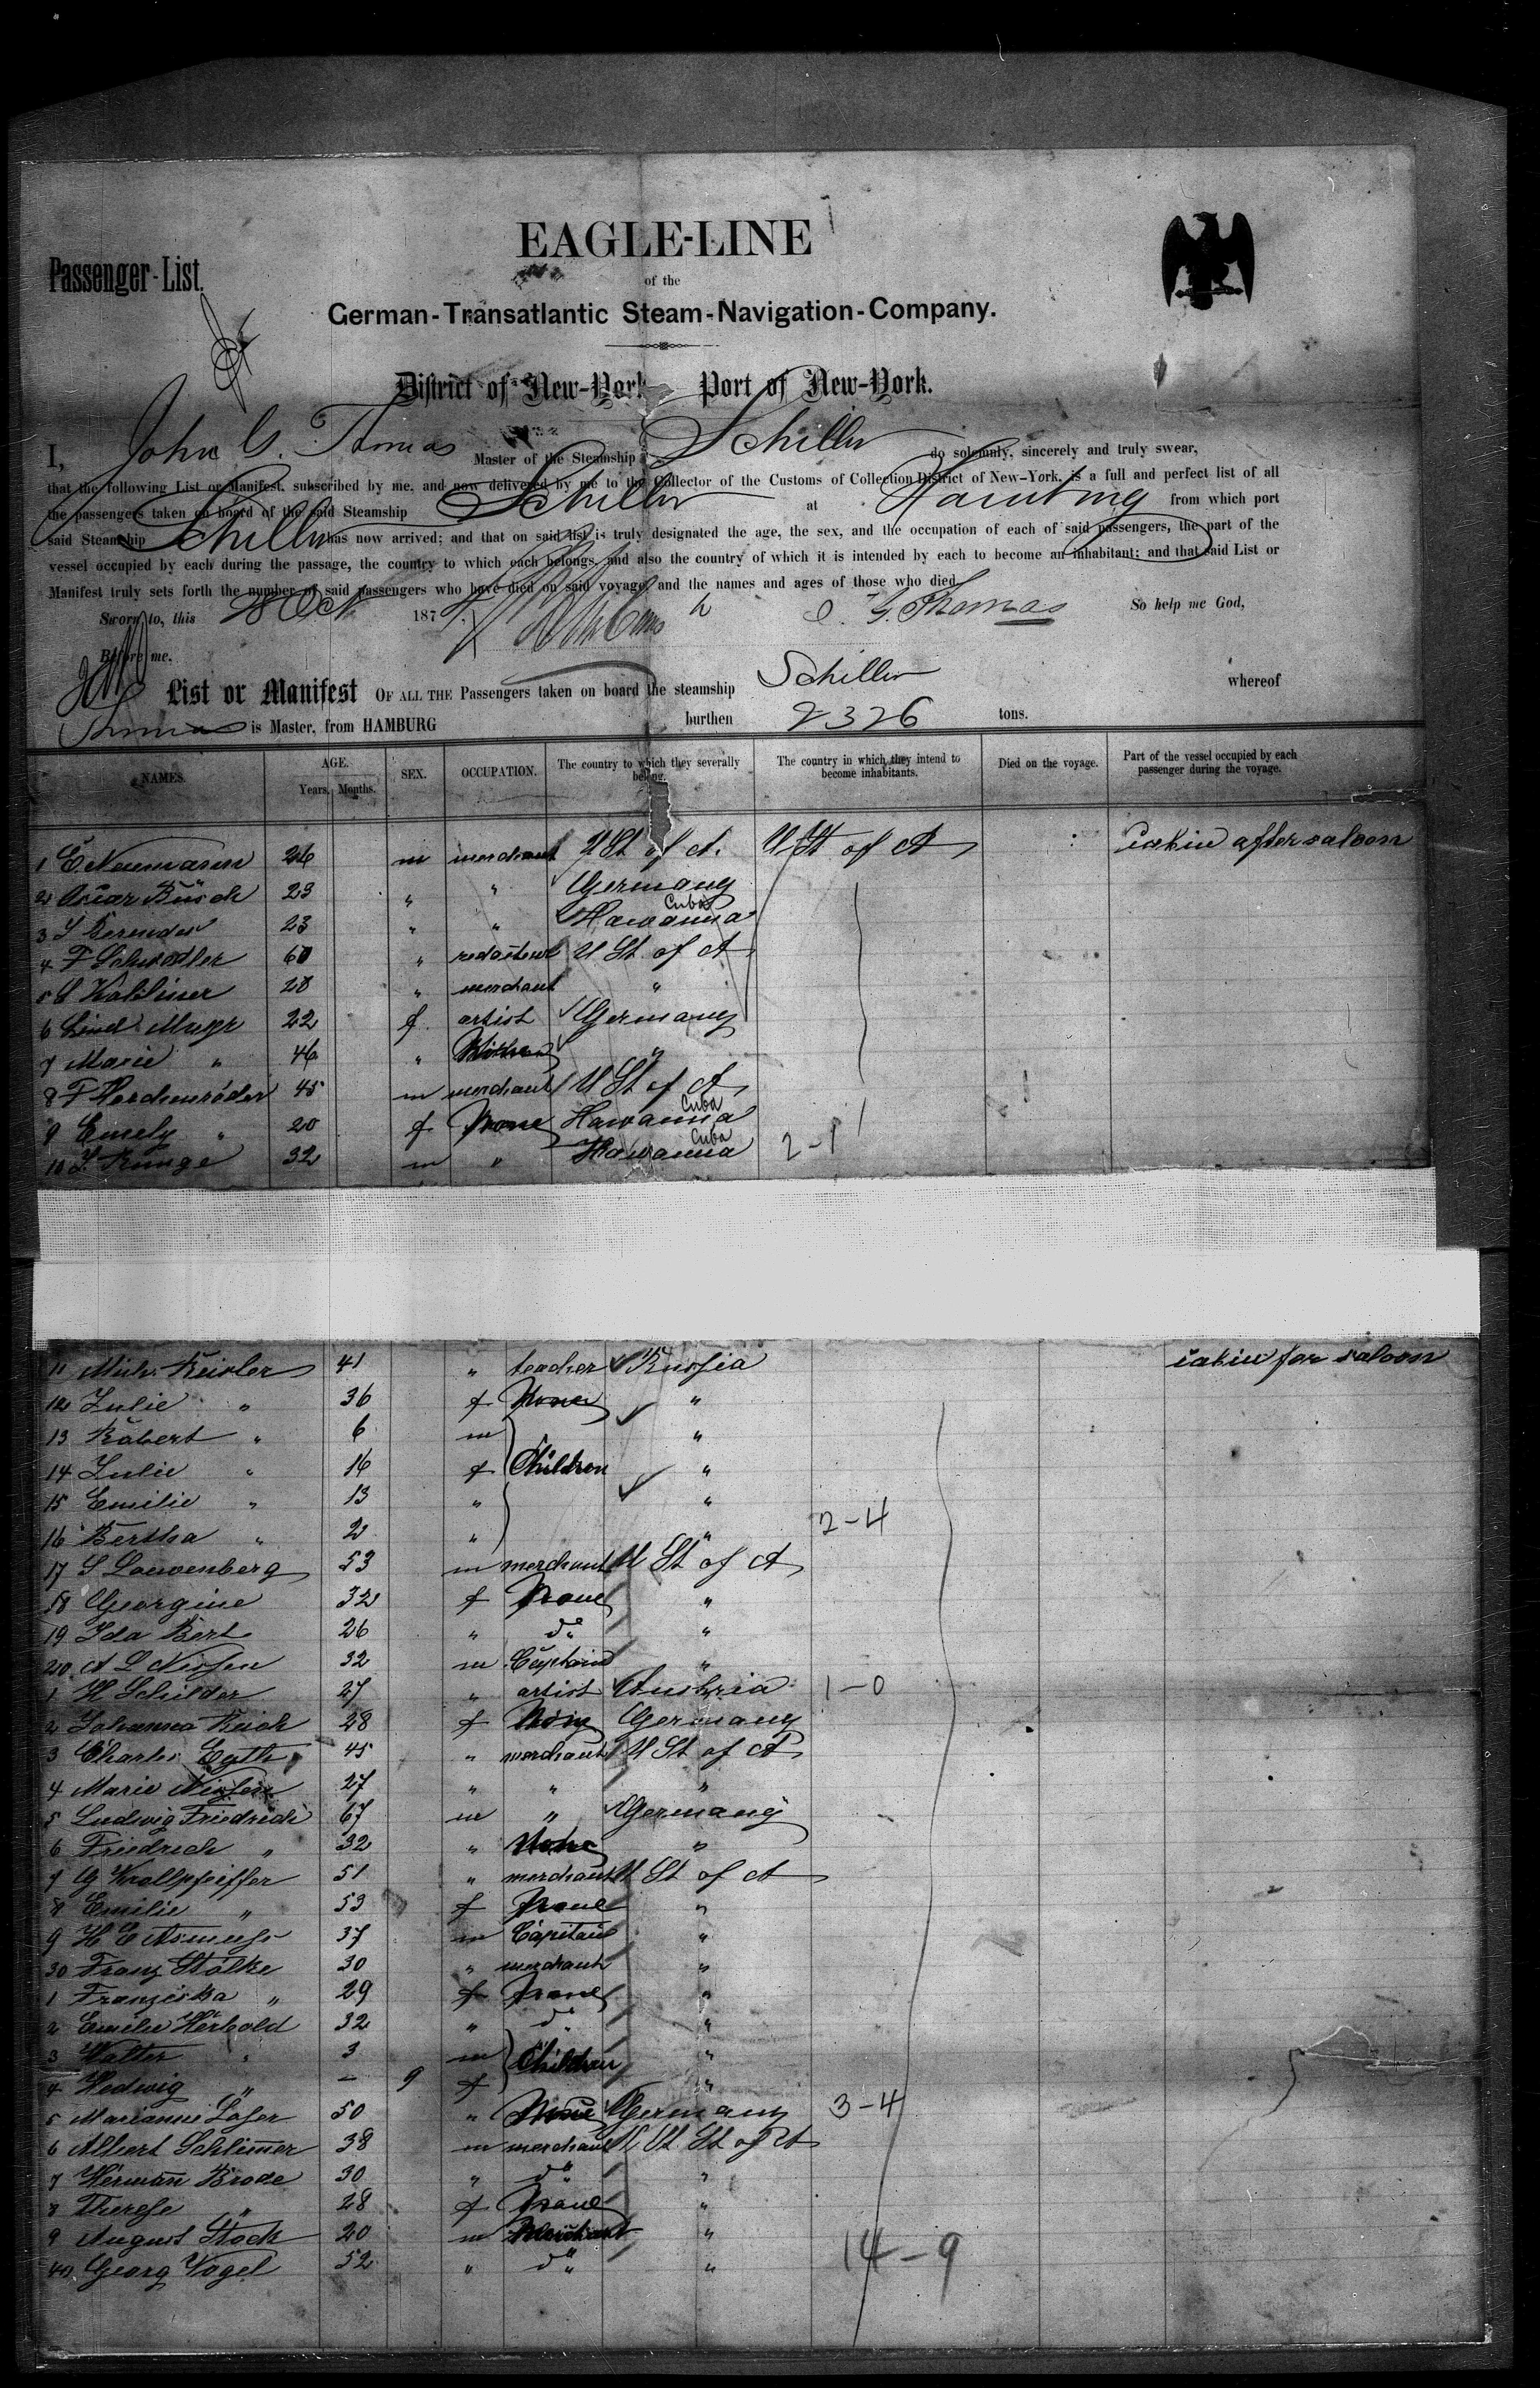 EAGLE-LINE
Passenger-List.
of the
German-Transatlantic Steam-Navigation-Company.
District of New-York Port of New-York.
I, John G. Thomas Master of the Steamship Schiller do solemnly, sincerely and truly swear,
that the following List or Manifest, subscribed by me, and now delivered by me to the Collector of the Customs of Collection District of New-York, is a full and perfect list of all
the passengers taken on board of the said Steamship Schiller at Hamburg from which port
said Steamship Schiller has now arrived; and that on said list is truly designated the age, the sex, and the occupation of each of said passengers, the part of the
vessel occupied by each during the passage, the country to which each belongs, and also the country of which it is intended by each to become an inhabitant; and that said List or
Manifest truly sets forth the number of said passengers who have died on said voyage, and the names and ages of those who died.
Sworn to, this 28 Oct 187 J. G. Thomas So help me God,
Before me.
List or Manifest OF ALL THE Passengers taken on board the steamship Schiller whereof
Thomas is Master, from HAMBURG burthen 2326 tons.
NAMES. AGE. Years. Months. SEX. OCCUPATION. The country to which they severally belong. The country in which they intend to become inhabitants. Died on the voyage. Part of the vessel occupied by each passenger during the voyage.
1 E. Neumann 26 m merchant U St of A. U St of A cabin after saloon
2 Oscar Büsch 23 " " Germany
3 S Berendes 23 " " Hawanna Cuba
4 F 60 " redacteur U St of A
5 S Kalliner 28 " merchant "
6 22 f. artist Germany
7 Marie " 46 " "
8 F Herchenröder 45 m merchant U St of A
9 Emely " 20 f None Hawanna Cuba
10 Runge 32 m " Hawanna Cuba 2-1
11 Mich. Keisler 41 " teacher Russia cabin for saloon
12 Julie " 36 f None "
13 Robert " 6 m "
14 Julie " 16 f Children "
15 Emilie " 13 " "
16 Bertha " 2 " " 2-4
17 S Loewenberg 53 m merchant U St of A
18 Georgine 32 f None "
19 Ida Bert 26 " do "
20 A L Nissen 32 m Captain "
1 H Schilder 27 " artist Austria 1-0
2 Johanna 28 f Germany
3 Charles Egth 45 " merchant U St of A
4 Marie Nissen 27 " " "
5 Ludwig Friedrich 67 m " Germany
6 Friedrich " 32 " None "
7 G Krollpfeiffer 51 " merchant U St of A
8 Emilie " 53 f None "
9 H E Asmuss 37 m Capitain "
30 Franz Stölke 30 " merchant "
1 Franziska " 29 f None "
2 Emilie Herbold 32 " do "
3 Walter " 3 m Children "
4 Hedwig " – 9 f "
5 Marianne Loser 50 " None Germany 3-4
6 Albert Schlimer 38 m merchant U St of A
7 Hermann Brode 30 " do "
8 Therese " 28 f None "
9 August Stock 20 m Merchant "
40 Georg Vogel 52 " do " 14-9